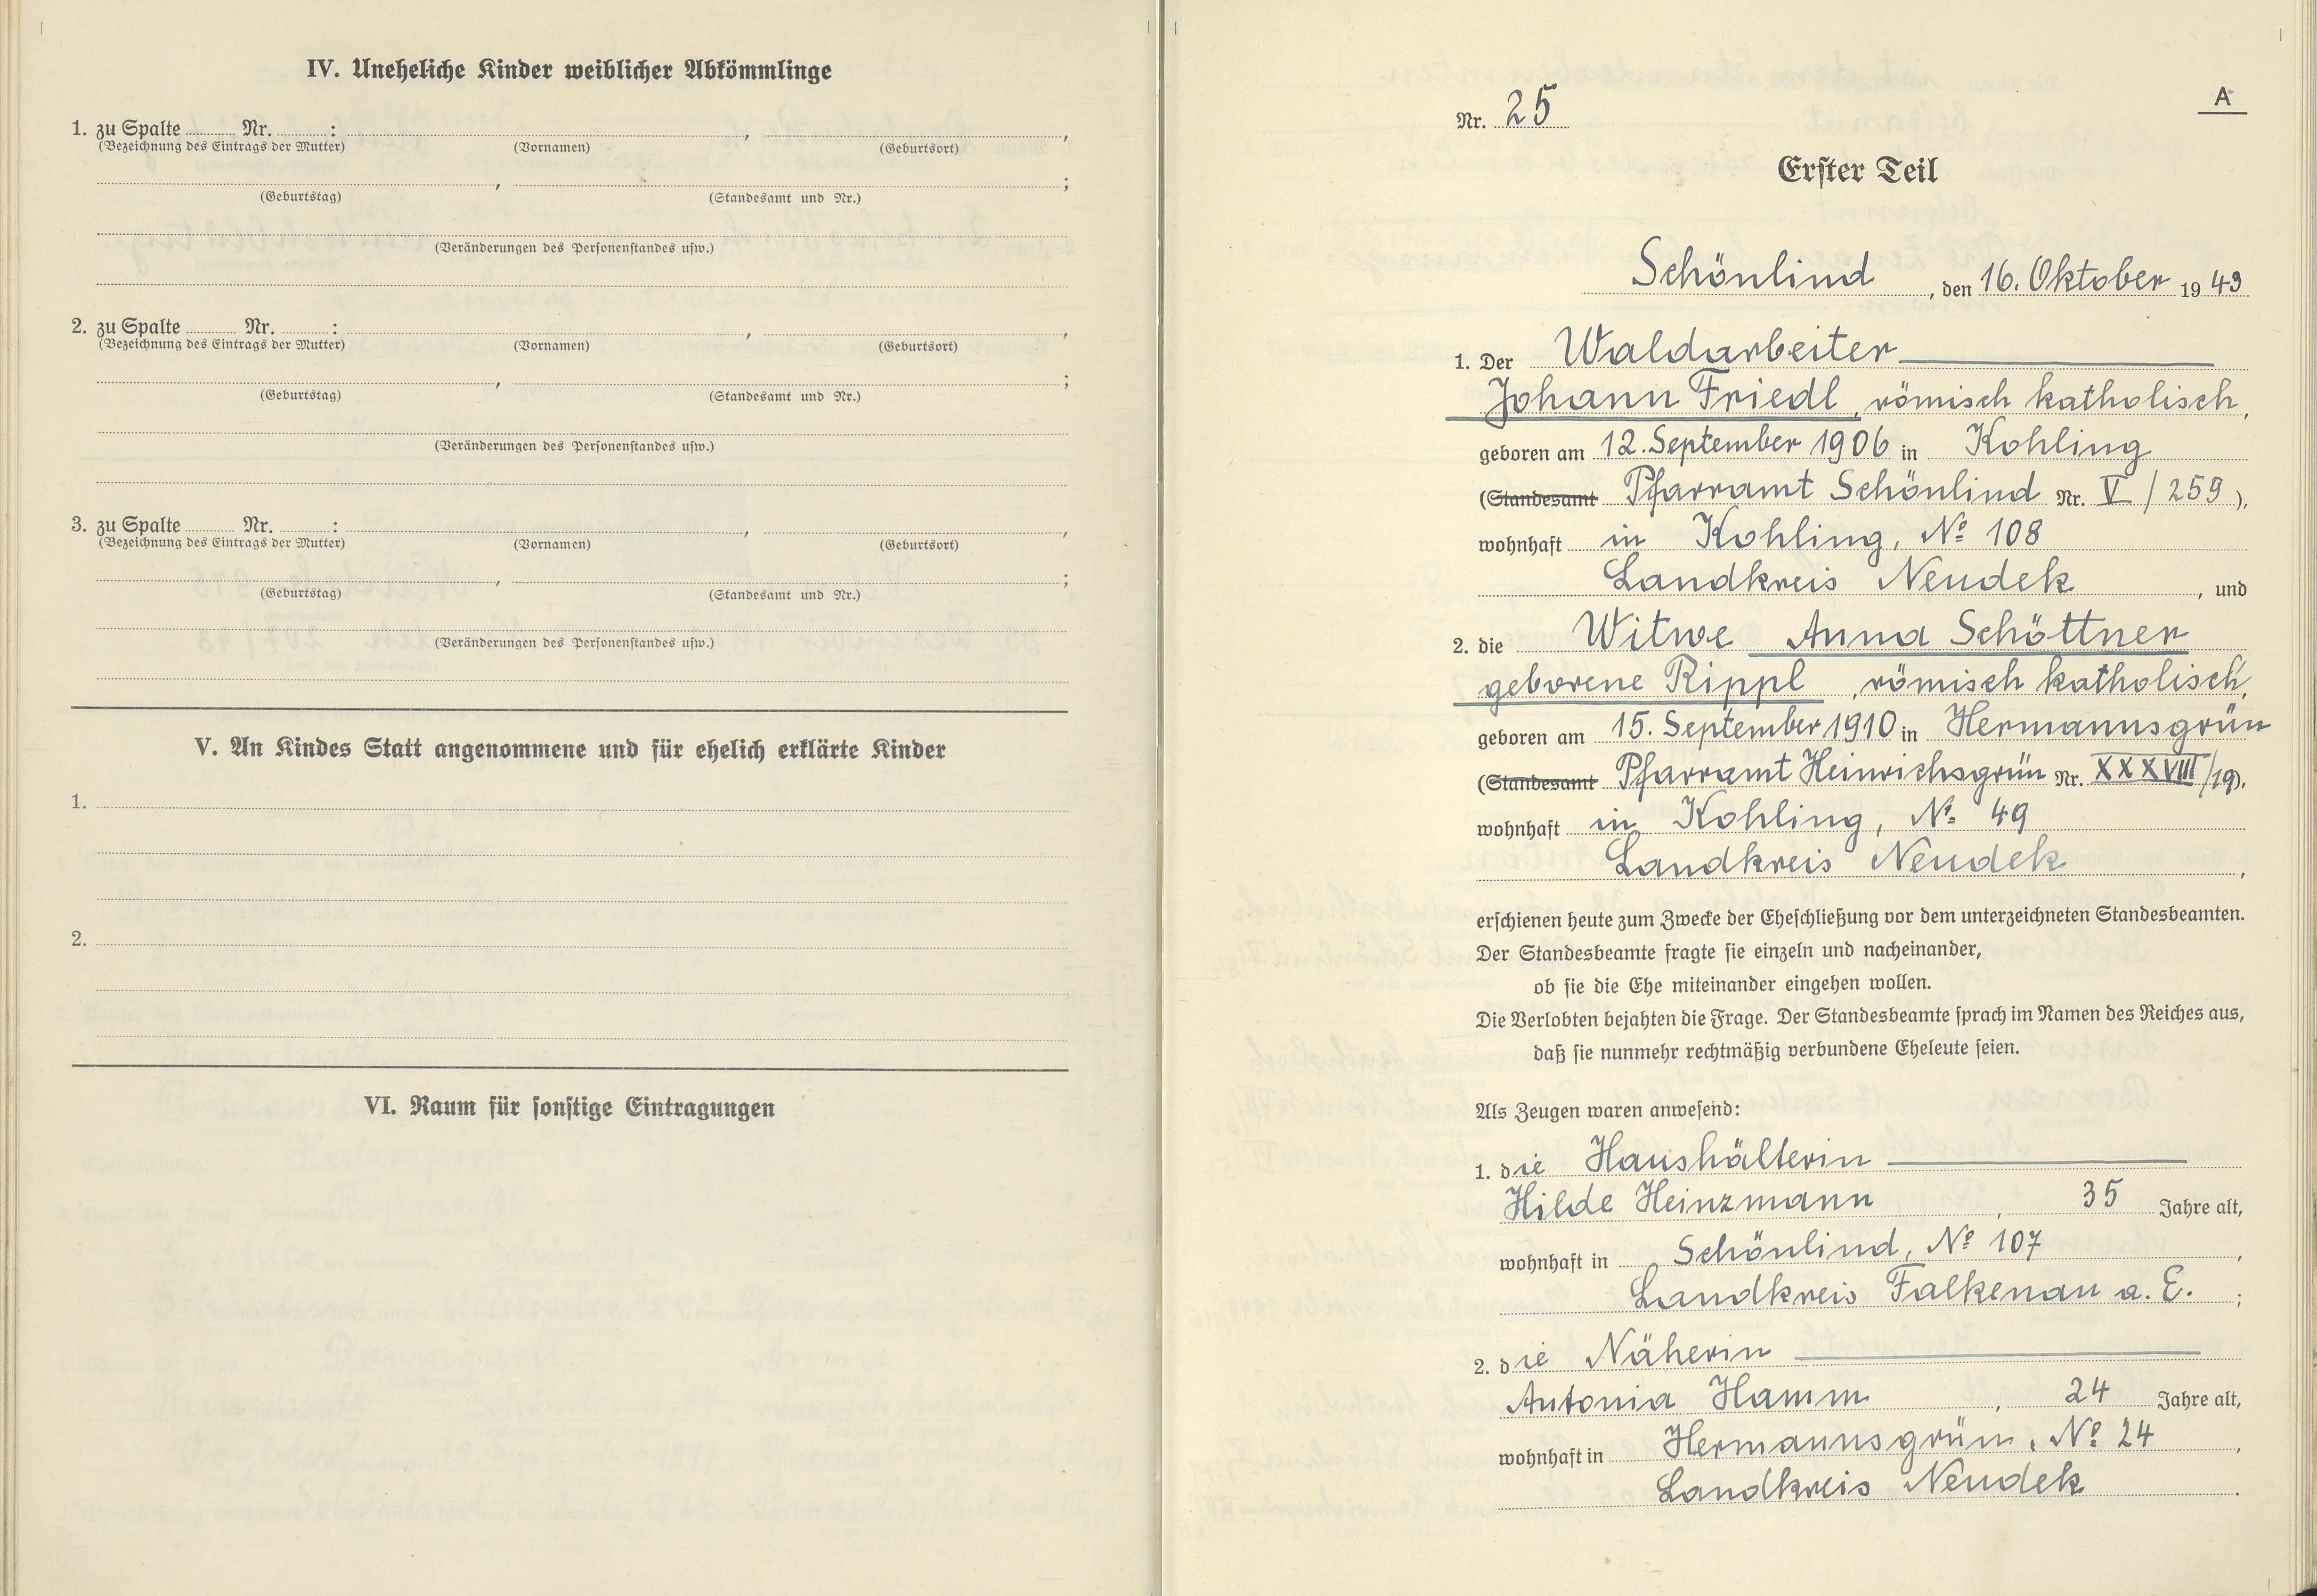 IV. Uneheliche Kinder weiblicher Abkömmlinge
1. zu Spalte ........ Nr. ........ : , ,
(Bezeichnung des Eintrags der Mutter) (Vornamen) (Geburtsort)
, ;
(Geburtstag) (Standesamt und Nr.)
(Veränderungen des Personenstandes usw.)
2. zu Spalte ........ Nr. ........ : , ,
(Bezeichnung des Eintrags der Mutter) (Vornamen) (Geburtsort)
, ;
(Geburtstag) (Standesamt und Nr.)
(Veränderungen des Personenstandes usw.)
3. zu Spalte ........ Nr. ........ : , ,
(Bezeichnung des Eintrags der Mutter) (Vornamen) (Geburtsort)
, ;
(Geburtstag) (Standesamt und Nr.)
(Veränderungen des Personenstandes usw.)
V. An Kindes Statt angenommene und für ehelich erklärte Kinder
1.
2.
VI. Raum für sonstige Eintragungen
A
Nr. 25
Erster Teil
Schönlind, den 16. Oktober 1943
1. Der Waldarbeiter
Johann Friedl, römisch katholisch,
geboren am 12. September 1906 in Kohling
(Standesamt Pfarramt Schönlind Nr. V / 259),
wohnhaft in Kohling, № 108
Landkreis Neudek, und
2. die Witwe Anna Schöttner
geborene Rippl, römisch katholisch,
geboren am 15. September 1910 in Hermannsgrün
(Standesamt Pfarramt Heinrichsgrün Nr. XXXVIII/19),
wohnhaft in Kohling, № 49
Landkreis Neudek,
erschienen heute zum Zwecke der Eheschließung vor dem unterzeichneten Standesbeamten.
Der Standesbeamte fragte sie einzeln und nacheinander,
ob sie die Ehe miteinander eingehen wollen.
Die Verlobten bejahten die Frage. Der Standesbeamte sprach im Namen des Reiches aus,
daß sie nunmehr rechtmäßig verbundene Eheleute seien.
Als Zeugen waren anwesend:
1. die Haushälterin
Hilde Heinzmann, 35 Jahre alt,
wohnhaft in Schönlind, № 107,
Landkreis Falkenau a. E. ;
2. die Näherin
Antonia Hamm, 24 Jahre alt,
wohnhaft in Hermannsgrün, № 24,
Landkreis Neudek.